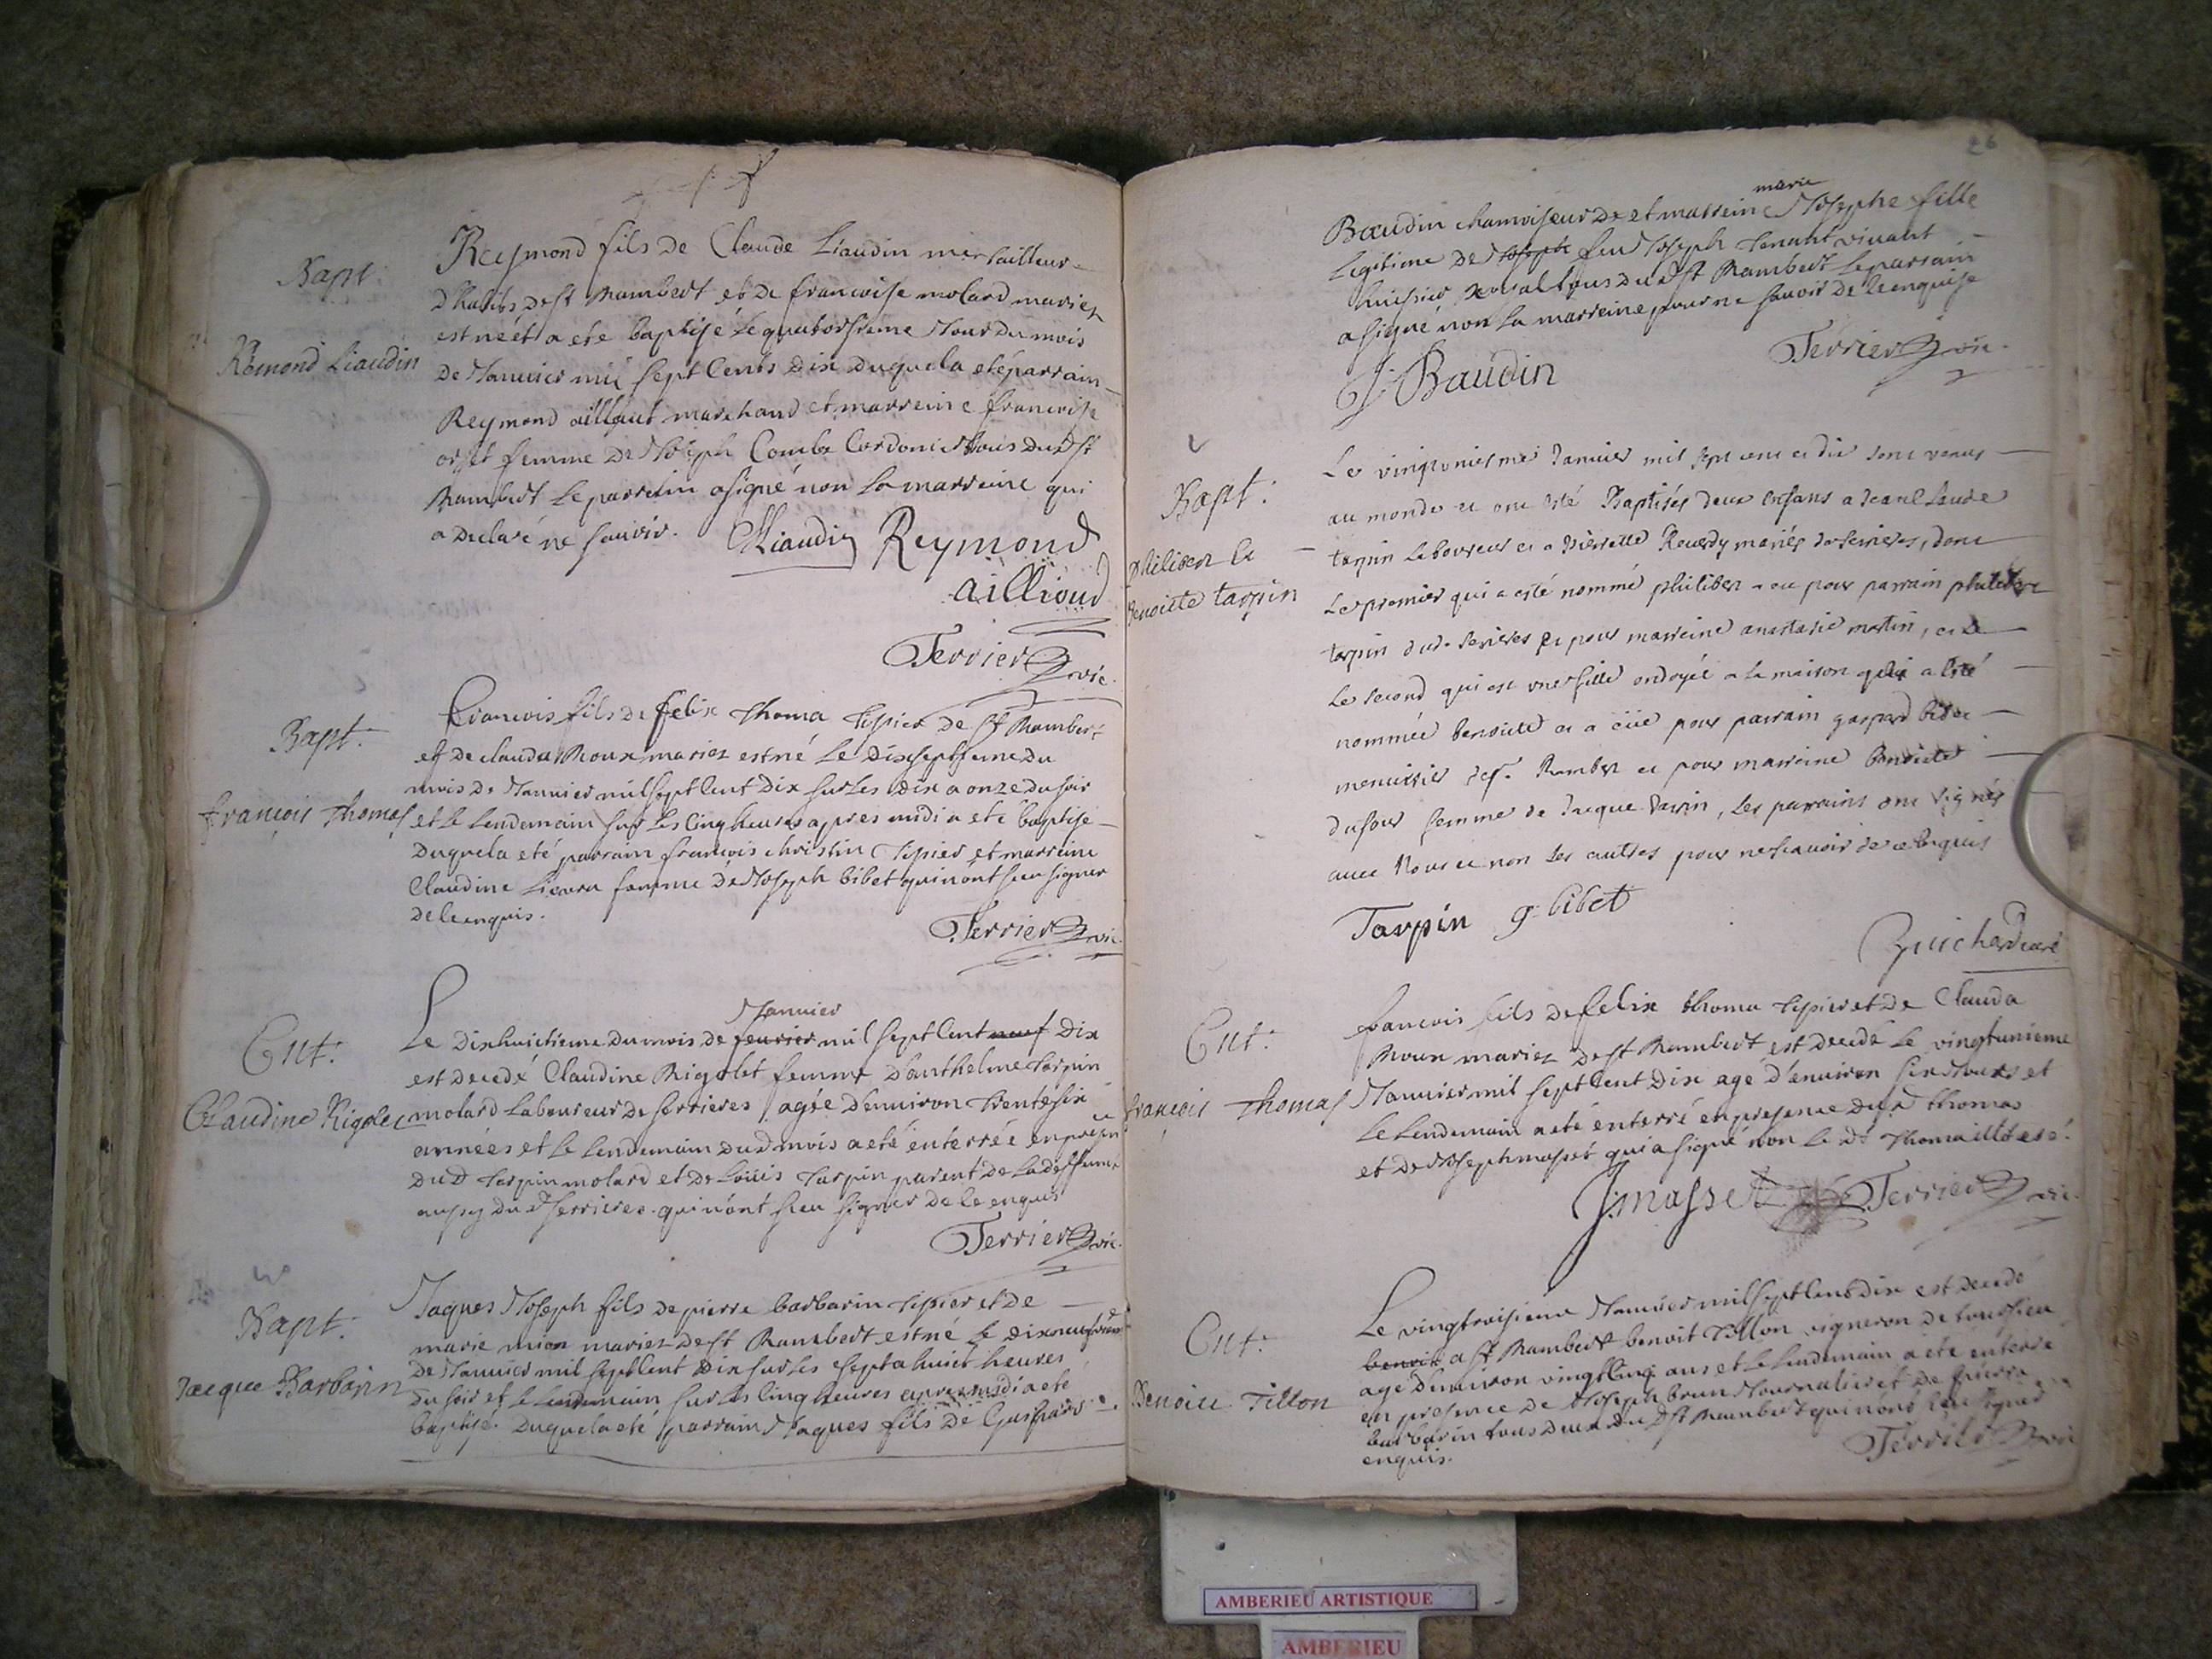 Bapt:
Rémond Liaudin
Reymond fils de Claude Liaudin me tailleur
d'habits de st Rambert et de francoise molard mariez
est né et a ete baptisé le quatorsieme Jour du mois
de Januier mil sept Cents dix duquel a eté parrain
Reymond aillaut marchand et marreine francoise
orset femme de Joseph Combe Cordonier tous dud st
Rambert le parrein a signé non la marreine qui
a declaré ne sauoir. CLiaudin Reymond
aillioud
Terrier vic.
Bapt:
françois Thomas
francois fils de felix Thoma tissier de st Rambert
et de clauda Roux mariez est né le dixseptieme du
mois de Januier mil sept Cent dix sur les dix a onze du soir
et le lendemain sur les cinq heures apres midi a eté baptisé
duquel a eté parrain francois christin tissier et marreine
Claudine femme de Joseph bibet qui n'ont sceu signer
de ce enquis.
Terrier vic.
Ent:
Claudine Rigolet
Januier
Le dixhuictieme du mois de feurier mil sept Cent neuf dix
est decedé Claudine Rigolet femme d'anthelme tarpin
molard laboureur de serrieres agée d'enuiron trente six
années et le lendemain dud mois a eté enterrée en presen
dud tarpin molard et de Loüis tarpin parent de la deffunte
aussy dud serrieres qui n'ont sceu signer de ce enquis
Terrier vic.
Bapt:
Jacque Barbarin
Jaques Joseph fils de pierre barbarin tissier et de
marie mion mariez de st Rambert est né le dixneufvieme
de Januier mil sept Cent dix sur les sept a huict heures
du soir et le lendemain sur les cinq heures apres midi a eté
baptisé. duquel a eté parrain Jaques fils de Gaspard
26
marie
Baudin chamoiseur de et marreine Josephe fille
legitime de Joseph feu Joseph tenant viuant
huissier royal tous dud st Rambert le parrain
a signé non la marreine pour ne sauoir de ce enquise
J. Baudin
Terrier vic.
Bapt:
philiber et
benoitte tarpin
Le vingtuniesme Januier mil sept cent et dix sont venus
au monde et ont esté Baptisés deux enfans a Jean Claude
tarpin laboureur et a pierrette mariés de serrieres, dont
le premier qui a esté nommé philiber a eu pour parrain philiber
tarpin dud. serieres et pour marreine anastasie martin, et le
le second qui est vne fille ondoyée a la maison qui a esté
nommée benoite et a eüe pour parrain gaspard bibet
menuisier de st. Rambert et pour marreine benoite
dufour femme de Jacque , les parrains ont signés
auec Nous et non les autres pour ne scauoir de ce enquis
Tarpin g bibet
Guichard curé
Ent:
françois Thomas
francois fils de felix thoma tissier et de Clauda
Roux mariez de st Rambert est decedé le vingtunieme
Januier mil sept Cent dix agé d'enuiron six Jours et
le lendemain a eté enterré en presence dud thomas
et de Joseph masset qui a signé non le dt Thoma illiteré.
J. masset Terrier vic.
Ent:
Benoict Tillon
Le vingtroisieme Januier mil sept Cent dix est decedé
benoit a st Rambert benoit Tillon vigneron de
agé d'enuiron vingt cinq ans et le lendemain a eté enterré
en presence de Joseph brun Journalier et de pierre
barbarin tous deux dud st Rambert qui n'ont sceu signer
enquis.
Terrier vic
AMBERIEU ARTISTIQUE
AMBERIEU